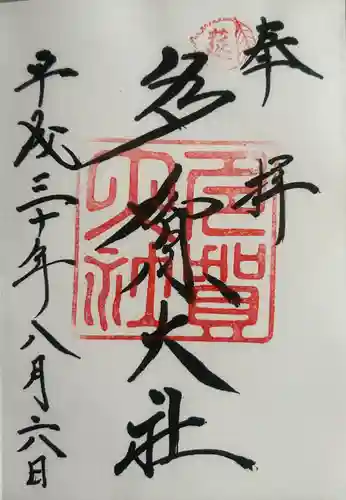 奉拝
多賀大社
平成三十年八月六日
多賀大社